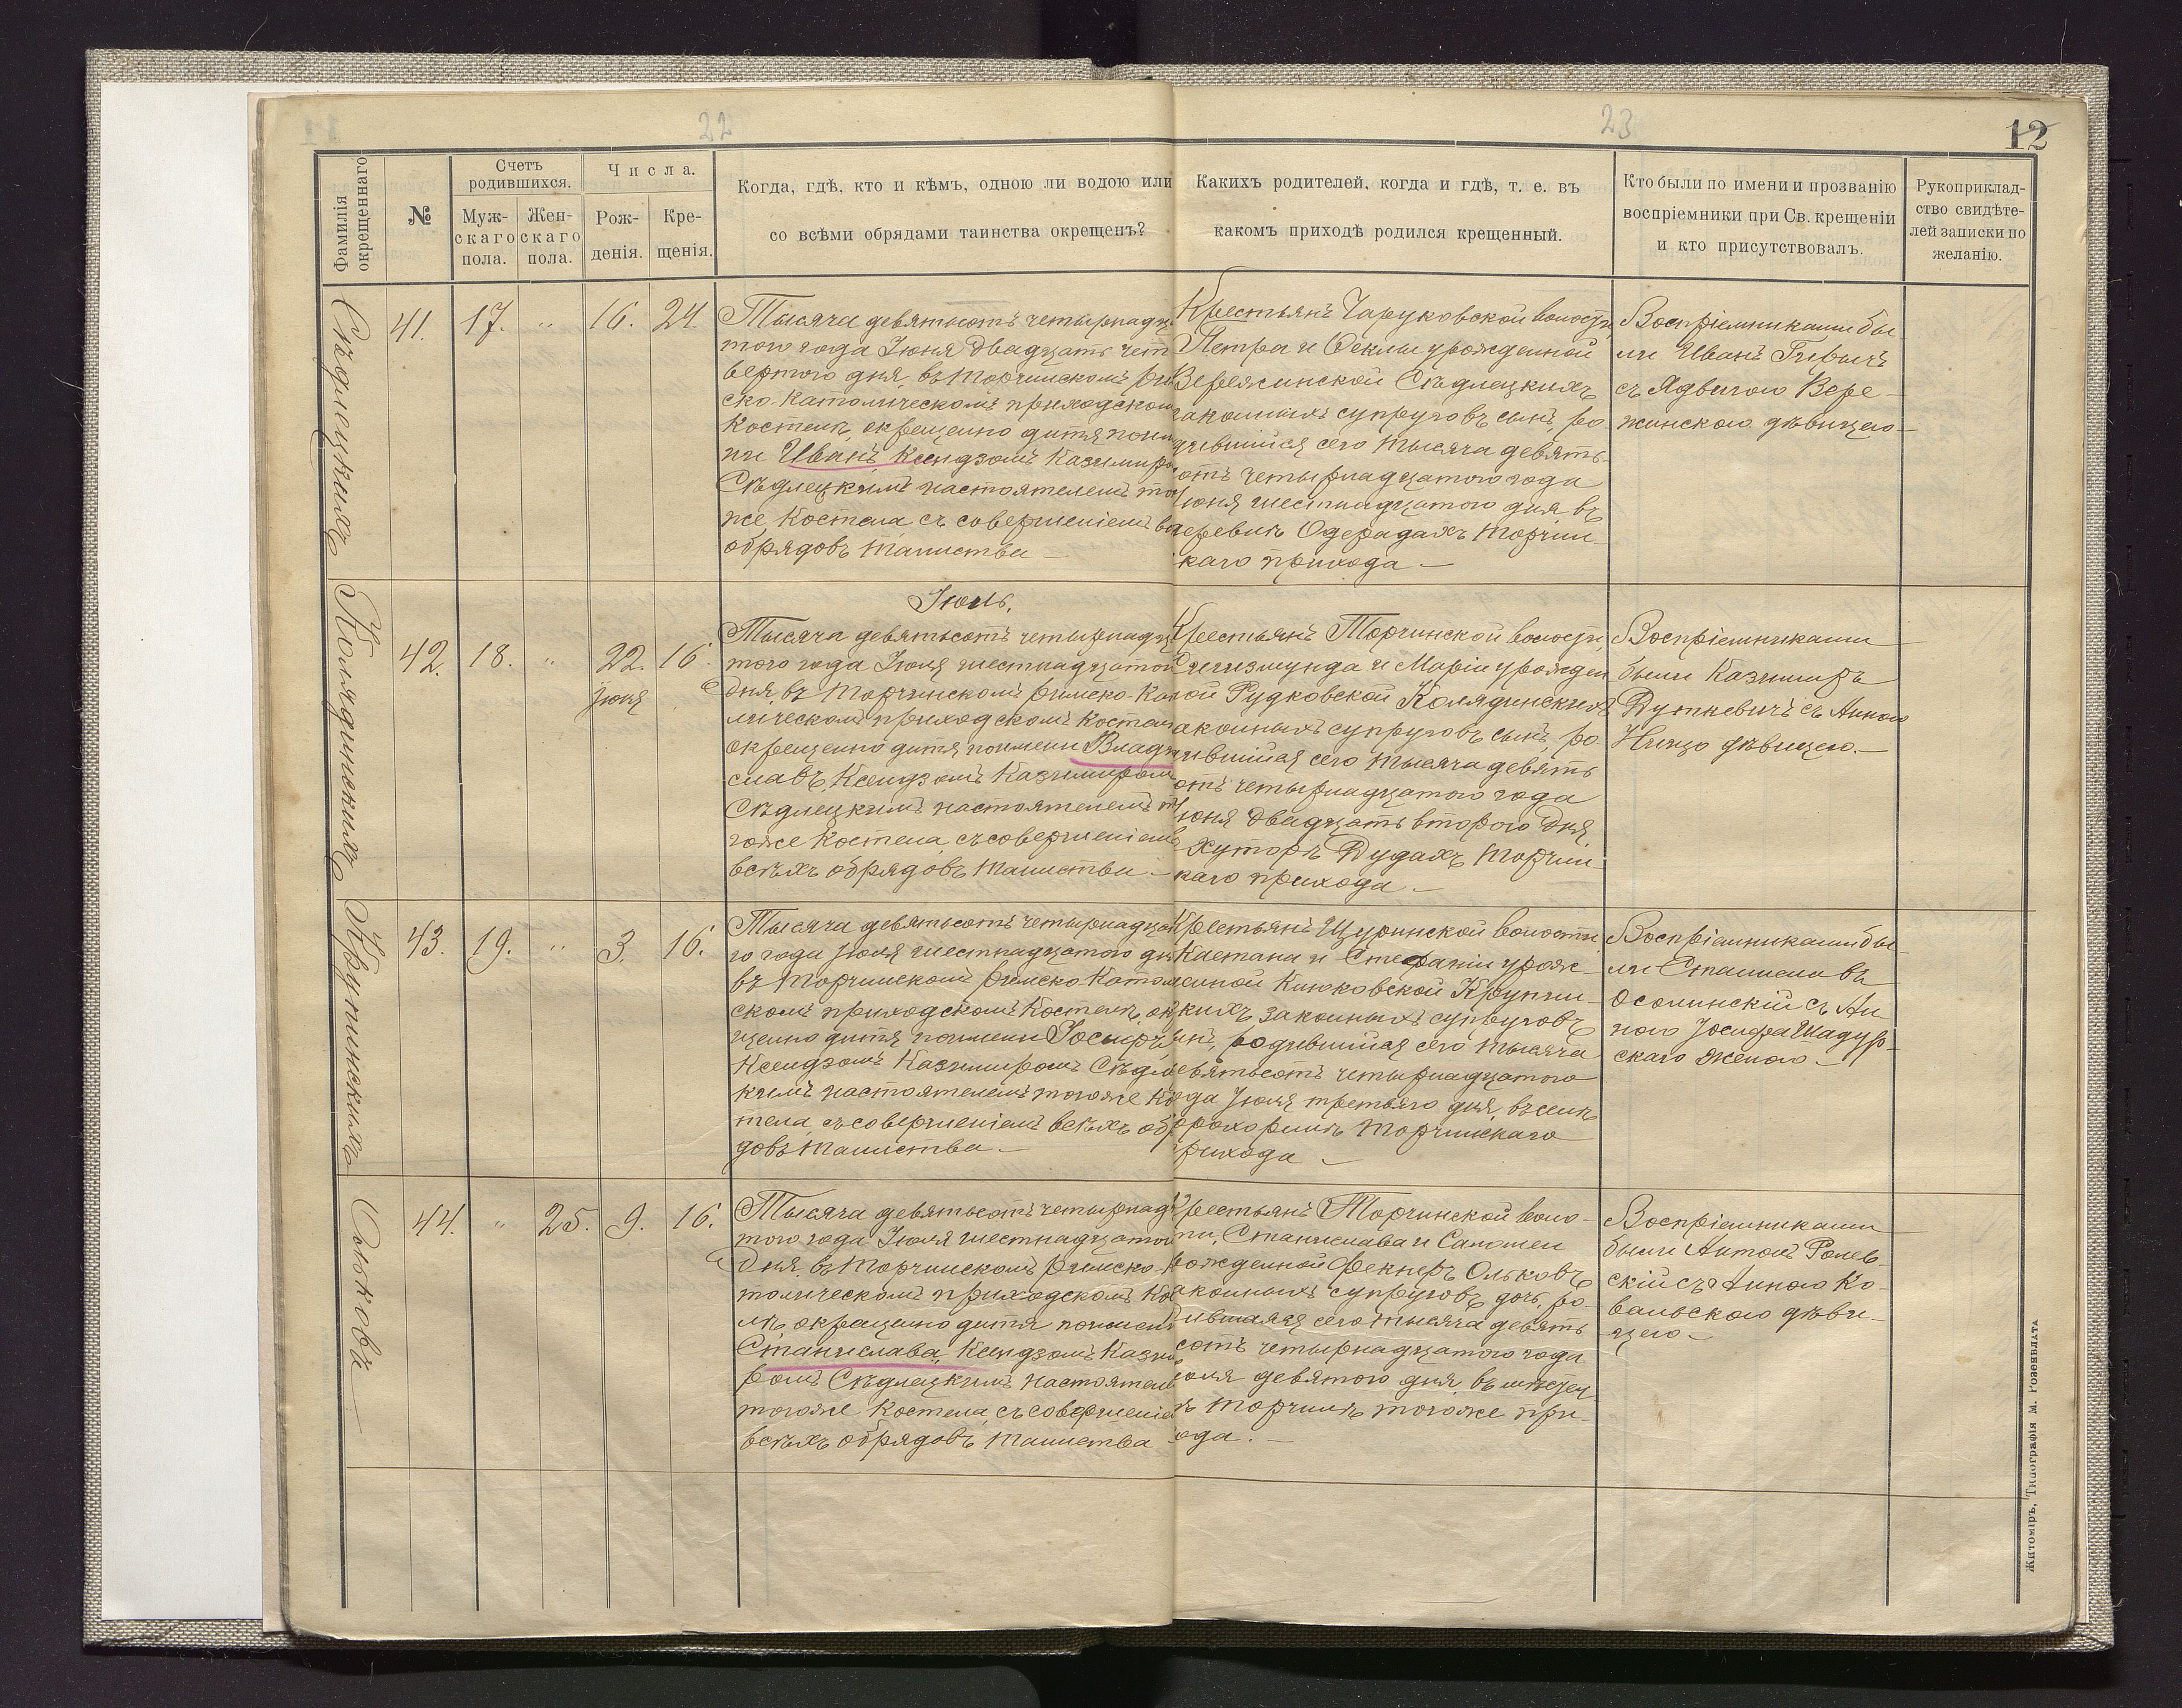 22
23
12
Фамилія окрещеннаго
№
Счетъ родившихся.
Мужскаго пола.
Женскаго пола.
Числа.
Рожденія.
Крещенія.
Когда, гдѣ, кто и кѣмъ, одною ли водою или
со всѣми обрядами таинства окрещенъ?
Какихъ родителей, когда и гдѣ, т. е. въ
какомъ приходѣ родился крещенный.
Кто были по имени и прозванію
воспріемники при Св. крещеніи
и кто присутствовалъ.
Рукоприклад-
ство свидѣте-
лей записки по
желанію.
Сѣдлецкихъ
41. 17. „ 16. 24.
Тысяча девятьсотъ четырнадц
того года Іюня двадцать чет
вертого дня, въ Торчинскомъ Ри
ско-Католическомъ приходском
Костелѣ, окрещено дитя поим
ни Иванъ, Ксендзомъ Казимиро
Сѣдлецкимъ настоятелемъ то
же Костела съ совершеніемъ вс
обрядовъ таинства —
Крестьянъ Чаруковской волости,
Петра и Феклы урожденной
Вережинской Сѣдлецкихъ
законныхъ супруговъ сынъ, ро-
дившійся сего тысяча девять-
отъ четырнадцатого года
Іюня шестнадцатого дня въ
деревнѣ Одерадахъ Торчин-
каго прихода. —
Воспріемниками бы
ли Иванъ
съ Ядвигою Вере-
жинскою дѣвицею —
Колядинскихъ
Іюль.
42. 18. „ 22. Іюня 16.
Тысяча девятьсотъ четырнадц
того года Іюля шестнадцатого
дня, въ Торчинскомъ Римско-Ка
лическомъ приходскомъ Костел
окрещено дитя поимени Влади
славъ, Ксендзомъ Казимиром
Сѣдлецкимъ настоятелемъ т
гоже Костела, съ совершеніемъ
всѣхъ обрядовъ таинства —
Крестьянъ Торчинской волости,
Сигизмунда и Маріи урожден
ой Рудковской Колядинскихъ
аконныхъ супруговъ сынъ, ро-
ившійся сего тысяча девять
отъ четырнадцатого года
Іюня двадцать второго дня,
хуторѣ Дудахъ Торчин-
каго прихода. —
Воспріемниками
были Казимиръ
Дуткевичъ съ Анною
дѣвицею. —
Крупинскихъ
43. 19. „ 3. 16.
Тысяча девятьсотъ четырнадца
го года Іюля шестнадцатого дн
въ Торчинскомъ Римско Катол
скомъ приходскомъ Костелѣ, ок
щено дитя поимени Іосифъ,
Ксендзомъ Казимиромъ Сѣдле
кимъ настоятелемъ тогоже Ко
тела, съ совершеніемъ всѣхъ об
довъ таинства —
Крестьянъ Щуринской волости,
Каетана и Стефаніи урож-
енной Клюковской Крупин-
кихъ законныхъ супруговъ
ынъ, родившійся сего тысяча
евятьсотъ четырнадцатого
ода Іюля третьяго дня, въ селѣ
рохоринъ Торчинскаго
рихода —
Воспріемниками бы-
ли Станиславъ
Осолинскій съ Ан
ною Іосифа Шадур-
скаго женою —
Ольковъ
44. „ 25. 9. 16.
Тысяча девятьсотъ четырнад
того года Іюля шестнадцатого
дня, въ Торчинскомъ Римско-К
толическомъ приходскомъ Ко
лѣ, окрещено дитя поимени
Станислава, Ксендзомъ Кази
ромъ Сѣдлецкимъ настоятел
тогоже Костела, съ совершеніе
всѣхъ обрядовъ таинства
рестьянъ Торчинской воло-
ти, Станислава и Саломеи
рожденной Фекнеръ Ольковъ
аконныхъ супруговъ дочь, ро-
ившаяся сего тысяча девять
сотъ четырнадцатого года
юля девятого дня, въ мѣстеч
ѣ Торчинѣ тогоже при-
ода. —
Воспріемниками
были Антонъ Ролев-
скій съ Анною Ко-
вальскою дѣви-
цею —
Житоміръ, Типографія М. Розенблата